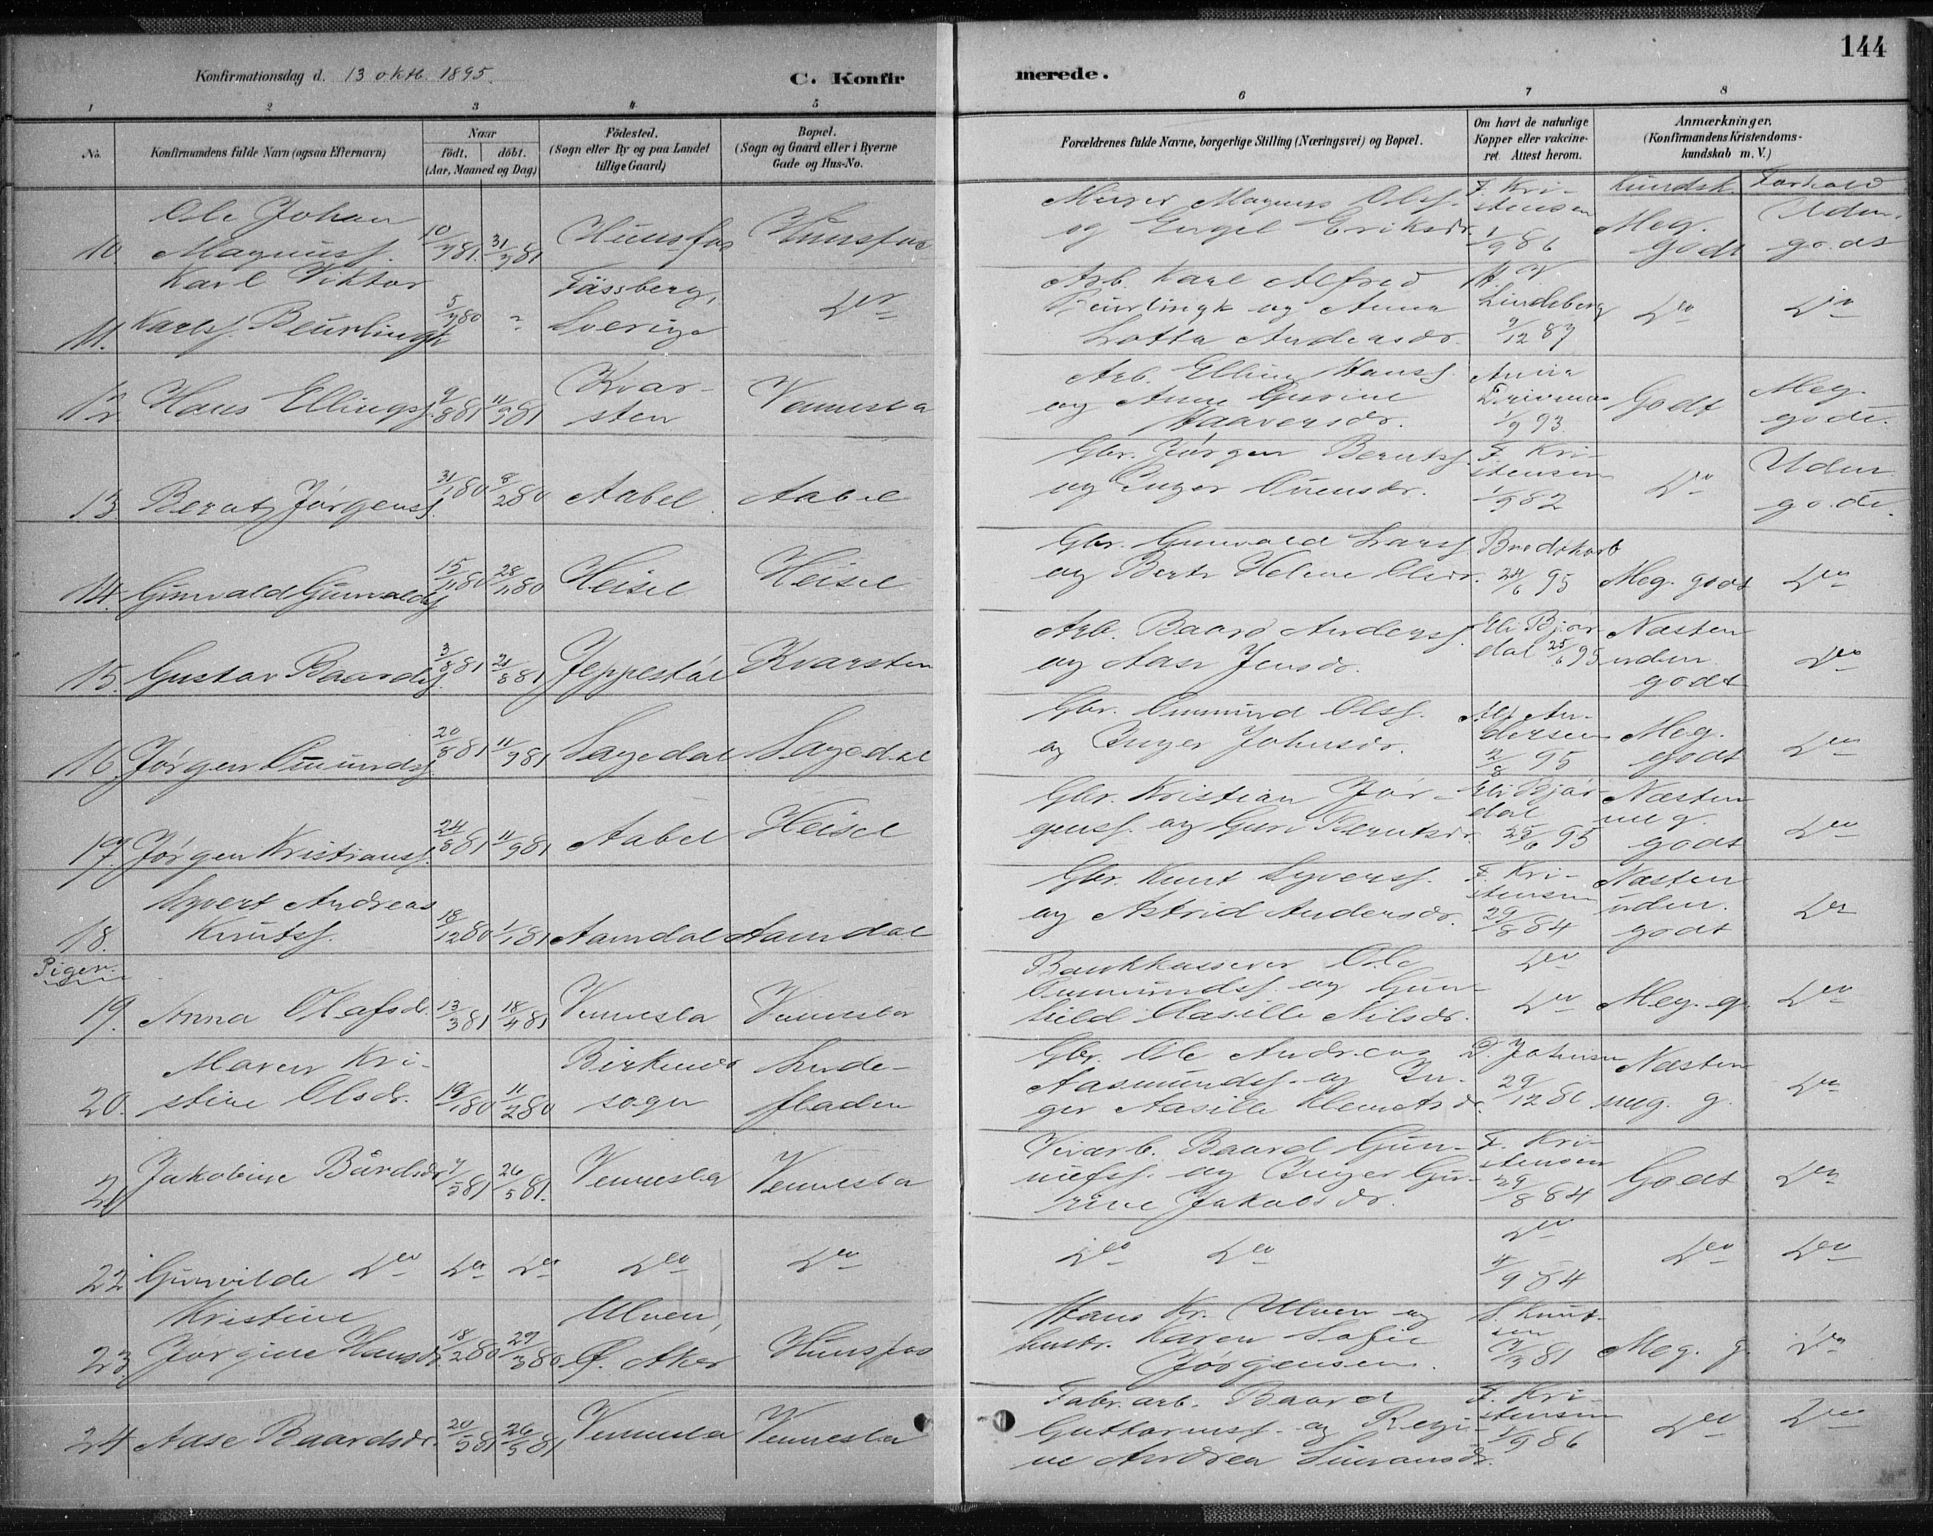 144
Konfirmationsdag d. 13 oktb. 1895.
C. Konfirmerede.
1 2 3 4 5 6 7 8
No.
Konfirmandens fulde Navn (ogsaa Efternavn)
Naar
født. døbt.
(Aar, Maaned og Dag)
Födested.
(Sogn eller By og paa Landet
tillige Gaard)
Bopæl.
(Sogn og Gaard eller i Byerne
Gade og Hus-No.
Forældrenes fulde Navne, borgerlige Stilling (Næringsvei) og Bopæl.
Om havt de naturlige
Kopper eller vakcine-
ret Attest herom.
Anmærkninger.
(Konfirmandens Kristendoms-
kundskab m. V.)
Kundsk. Forhold
10. Ole Johan
Magnusf. 10/7 81. 31/7 81 Hunsfos Hunsfos
Murer Magnus Olsf.
og Engel Eriksdr.
F. Kri-
stensen
1/9 86
Meg.
godt
Uden.
godt
11. Karl Viktor
Karlsf. Beurlingk 5/7 80 ? Fässberg,
Sverige Do
Arb. Karl Alfred
Beurlingk og Anna
Lotta Andersdr.
Lindeberg
9/12 87
Do Do
12. Hans Ellingsf. 9/8 81 11/9 81 Kvar-
sten Vennesla
Arb. Elling Hansf.
og Anne Gurine
Haaversdr.
1/9 93
Godt
Meg.
gode.
13. Berntz Jørgensf. 31/1 80 8/2 80 Aabel Aabel
Gbr. Jørgen Berntsf.
og Inger Ounensdr.
F. Kri-
stensen
1/9 82
Do
Uden
gode.
14. Gunvald Gunvaldsf. 15/11 80 28/11 80 Heisel Heisel
Gbr. Gunvald Larsf.
og Berte Helene Olsdr.
Bredskarb
24/6 95
Meg. godt Do
15. Gustav Baardsf. 3/8 81 21/8 81 Jeppestøl Kvarsten
Arb. Baard Andersf.
og Aase Jensdr.
Eli Bjør-
dal 25/6 95
Næsten
uden
godt
Do
16. Jørgen Omundsf. 20/8 81 11/9 81 Sagedal Sagedal
Gbr. Omund Olsf.
og Inger Johnsdr.
Alf. An-
dersen
2/8 95
Meg.
godt
Do
17. Jørgen Kristiansf. 24/8 81 11/9 81 Aabel Heisel
Gbr. Kristian Jør-
gensf. og Guri Berntsdr.
Eli Bjør-
dal
25/6 95
Næsten
meg.
godt
Do
18. Syvert Andreas
Knutsf. 18/12 80 1/1 81 Aamdal Aamdal
Gbr. Knut Syversf.
og Astrid Andersdr.
F. Kri-
stensen
29/8 84
Næsten
uden.
godt
Do
Piger.
19. Anna Olafsdr. 13/3 81 18/4 81 Vennesla Vennesla
Bankkasserer Ole
Aasmundsf. og Gun-
hild Aasille Nilsdr.
Do
Do
Meg. g. Do
20. Maren Kri-
stine Olsdr. 19/1 80 11/2 80 Birkenes
sogn Lunde-
fladen
Gbr. Ole Andreas
Aasmundsf. og In-
ger Aasille Klemetsdr.
D. Johnsen
29/12 86
Næsten
meg. g.
Do
21 Jakobine Bårdsdr. 7/5 81 26/5 81. Vennesla Vennesla
Veiarb. Baard Gun-
nufsf. og Inger Gu-
rine Jakobsdr.
F. Kri-
stensen
29/8 84
Godt Do
22 Gunvilde Do Do Do Do Do
Do Do
Do
4/9 84
Do Do
23 Kristine
Jørgine Hansdr. 18/2 80 29/3 80 Ulven,
Ø. Aker Hunsfos
Hans Kr. Ulven og
hustr. Karen Sofie
Jørgensen.
S. Knut-
sen
9/3 81
Meg. g. Do
24 Aase Baardsdr. 20/5 81 26/5 81 Vennesla Vennesla
Fabr. arb. Baard
Guttormsf. og Regi-
ne Andrea Simonsdr.
F. Kri-
stensen
1/9 86
Do Do